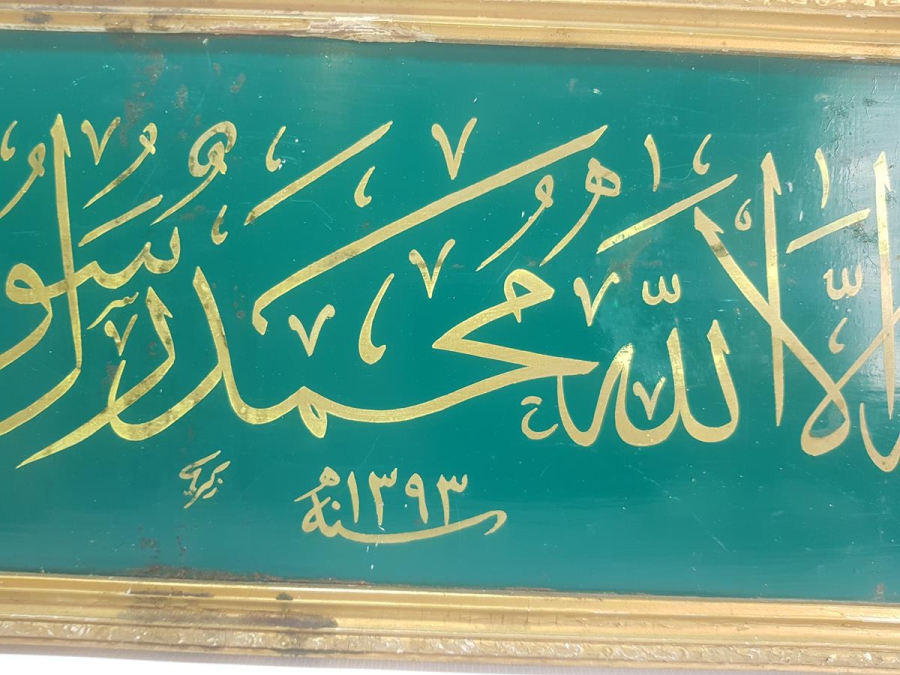 الا الله محمد رسول
سنة ١٣٩٣